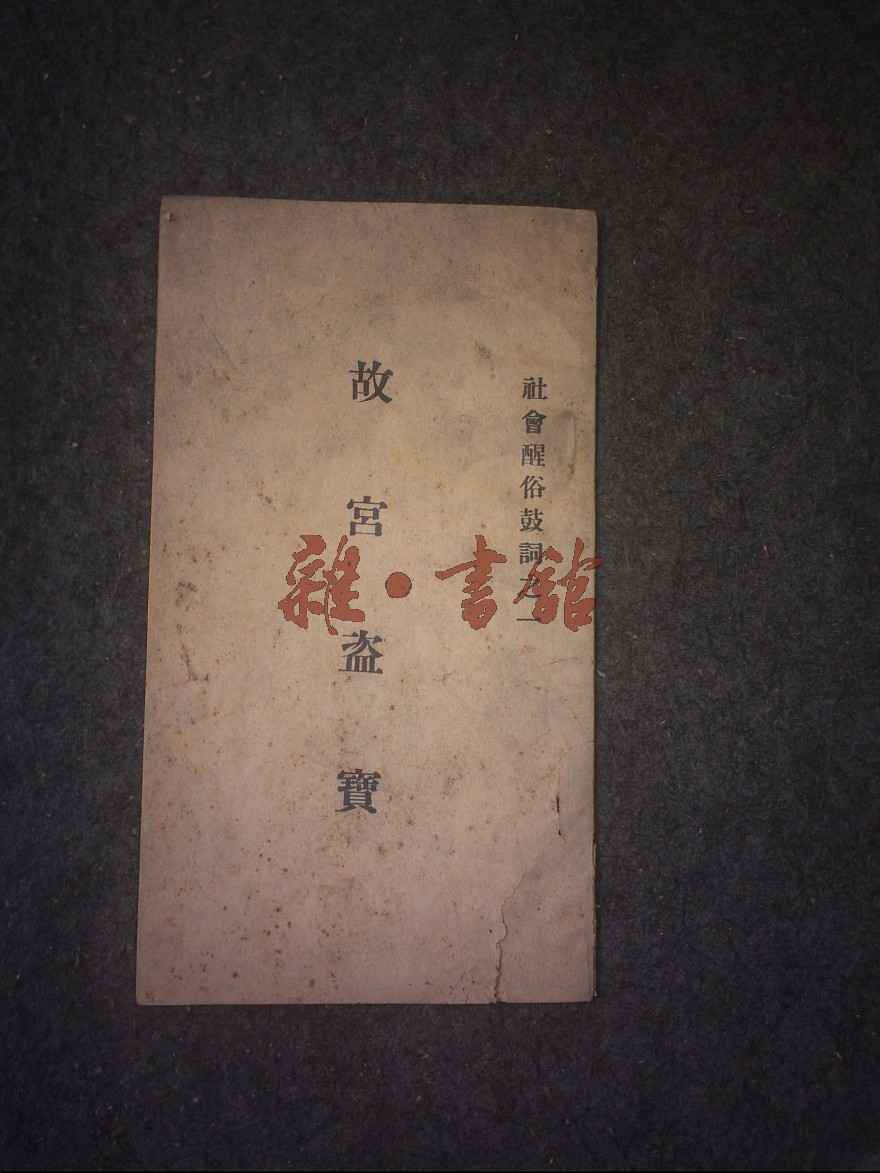 社會醒俗鼓詞之一
故宮盗寶
雜·書舘